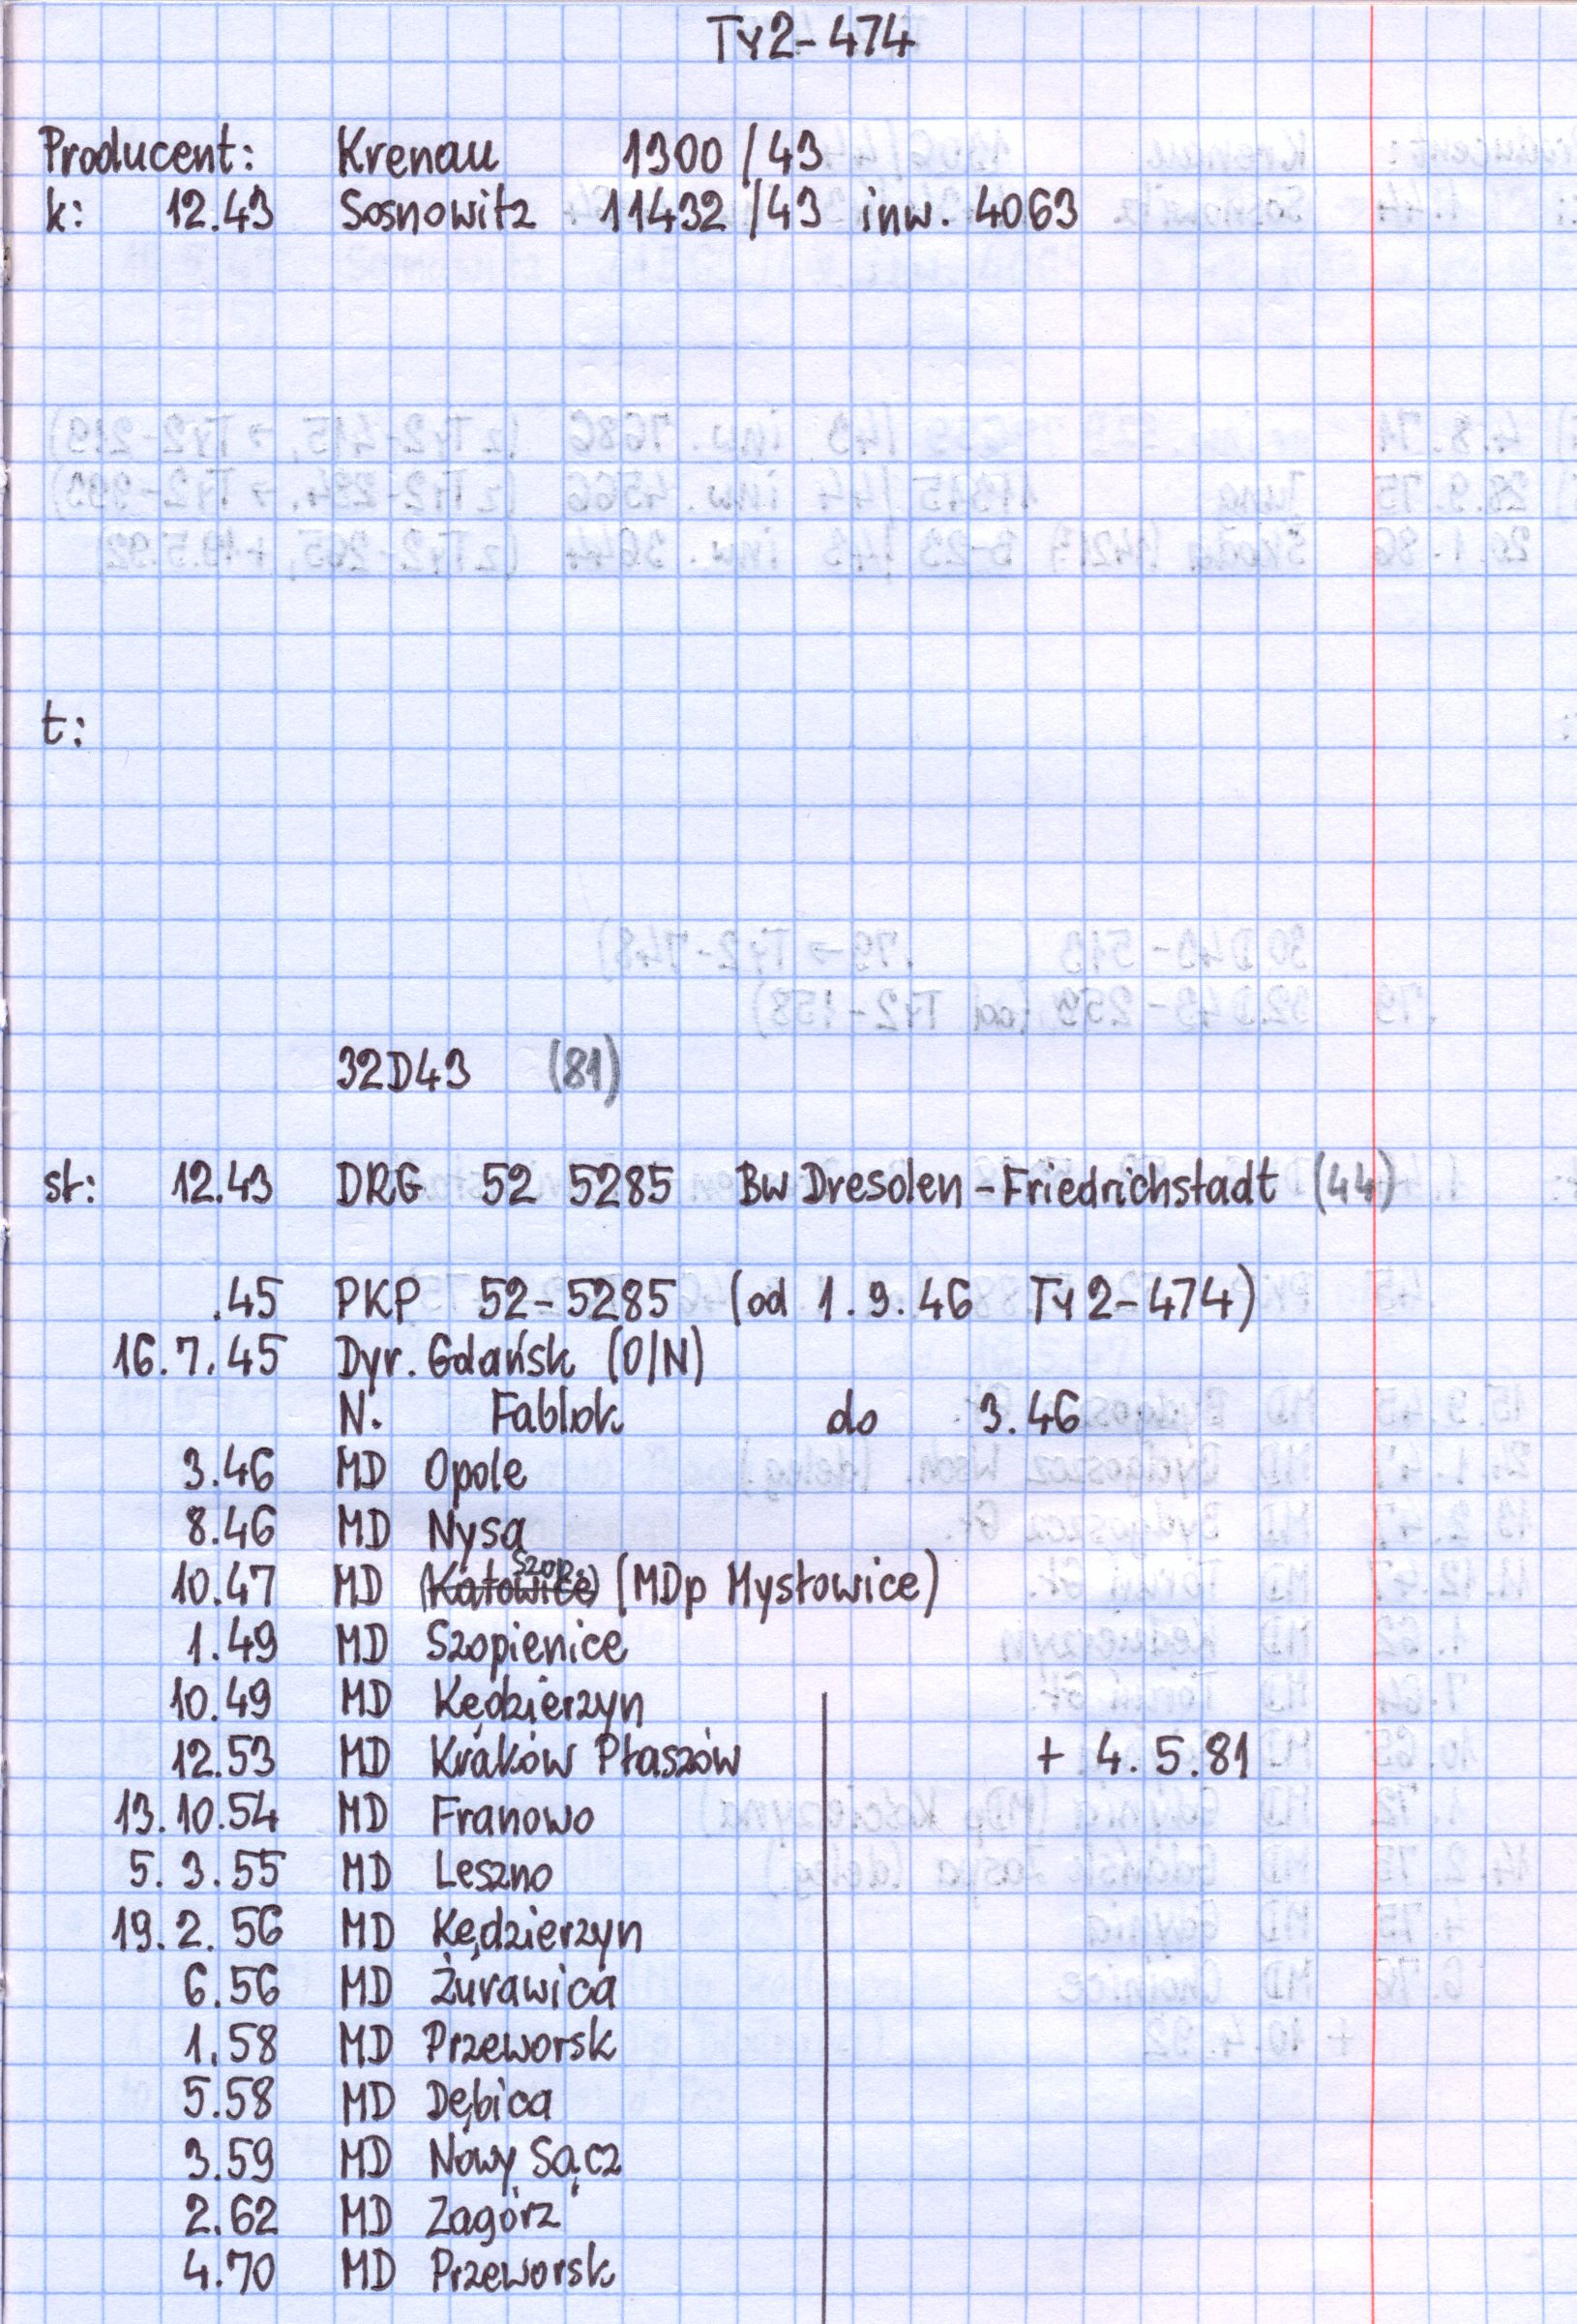 Ty2-474
Producent: Krenau 1300/43
k: 12.43 Sosnowitz 11432/43 inw. 4063
t:
32D43 (81)
st: 12.43 DRG 52 5285 Bw Dresden-Friedrichstadt (44)
.45 PKP 52-5285 (od 1.9.46 Ty2-474)
16.7.45 Dyr. Gdańsk (O/N)
N. Fablok do 3.46
3.46 MD Opole
8.46 MD Nysa
Szop.
10.47 MD (Katowice) (MDp Mysłowice)
1.49 MD Szopienice
10.49 MD Kędzierzyn
12.53 MD Kraków Płaszów + 4.5.81
13.10.54 MD Franowo
5.3.55 MD Leszno
19.2.56 MD Kędzierzyn
6.56 MD Żurawica
1.58 MD Przeworsk
5.58 MD Dębica
3.59 MD Nowy Sącz
2.62 MD Zagórz
4.70 MD Przeworsk